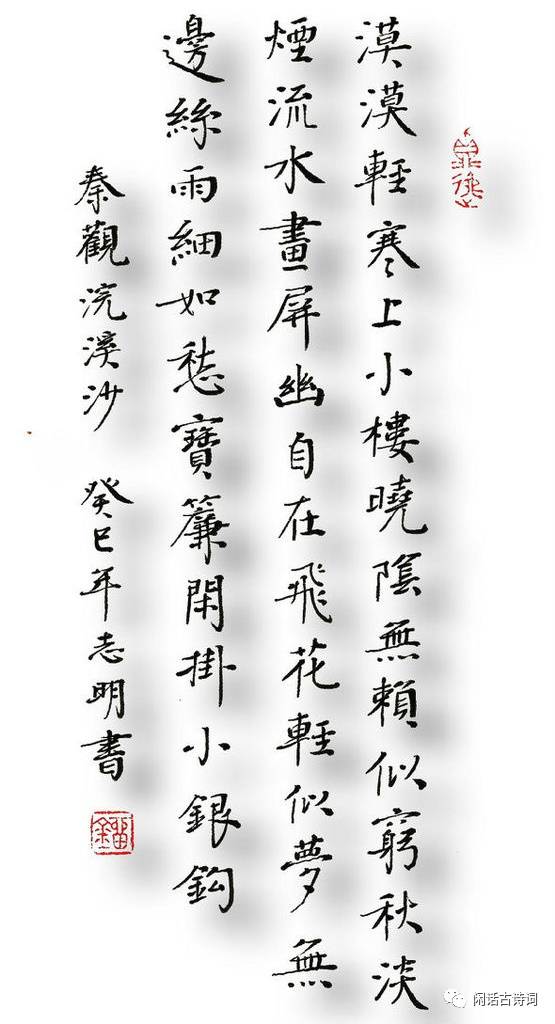 漠漠輕寒上小樓曉陰無賴似窮秋淡
煙流水畫屏幽自在飛花輕似夢無
邊絲雨細如愁寶簾閑掛小銀鈎
秦觀浣溪沙 癸巳年志明書
闲话古诗词